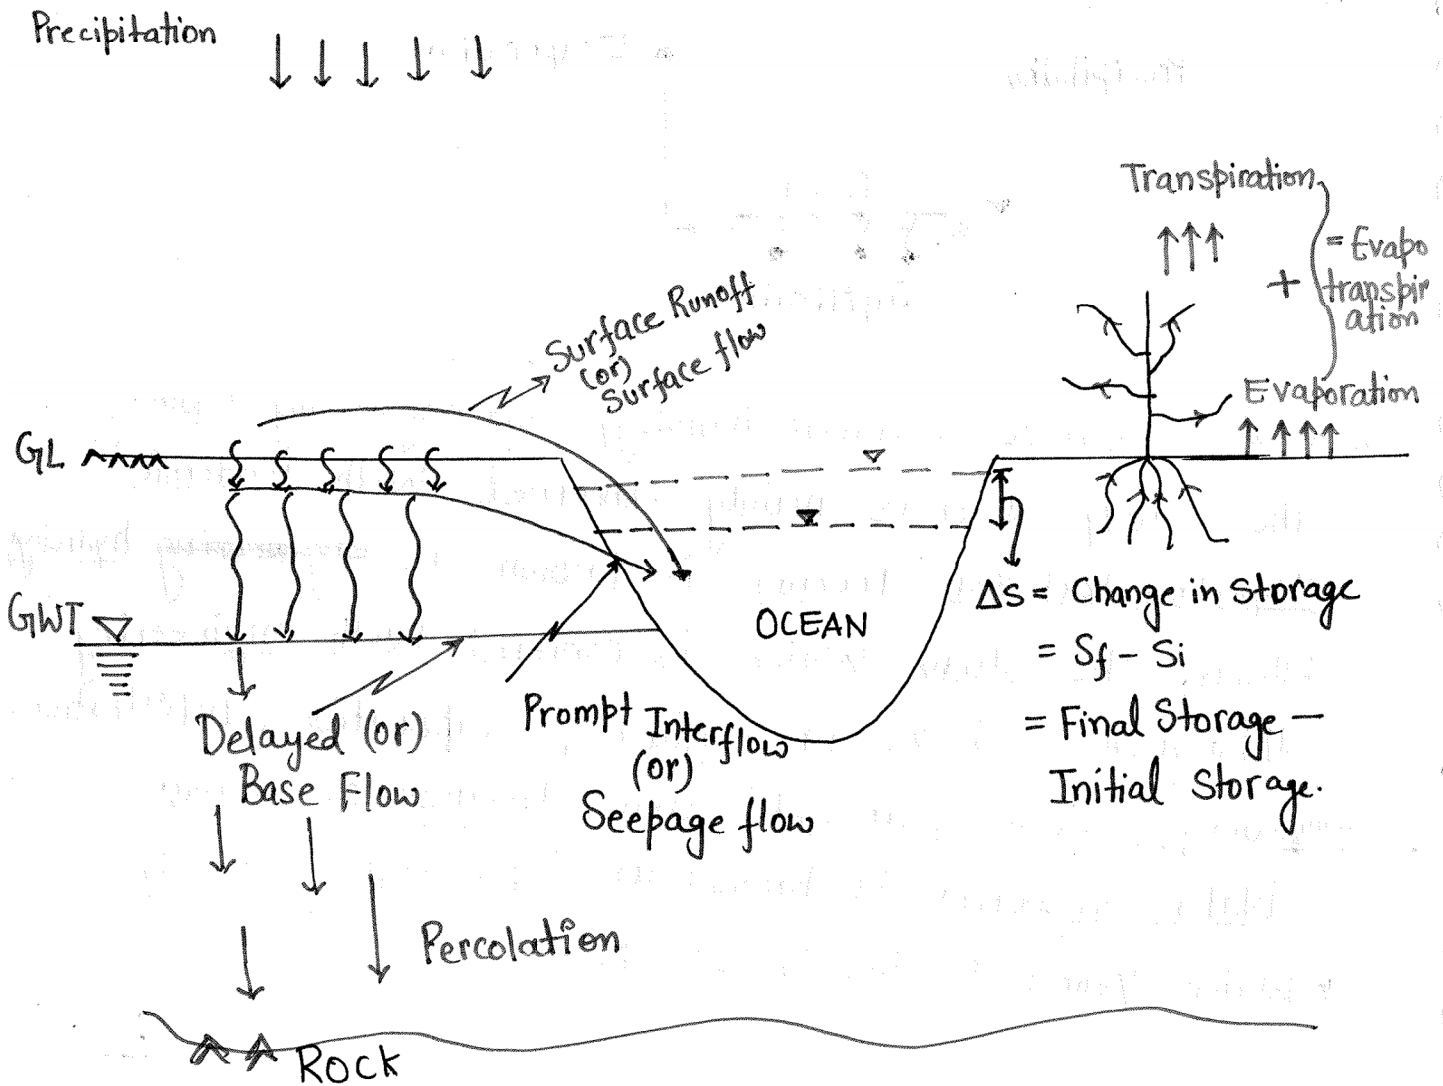 Precipitation
Transpiration
= Evapo
+ transpir
ation
Surface Runoff
(or)
Surface flow
Evaporation
GL
GWT
OCEAN
ΔS = Change in Storage
= Sf - Si
= Final Storage -
Initial Storage.
Delayed (or)
Base Flow
Prompt Interflow
(or)
Seepage flow
Percolation
ROCK